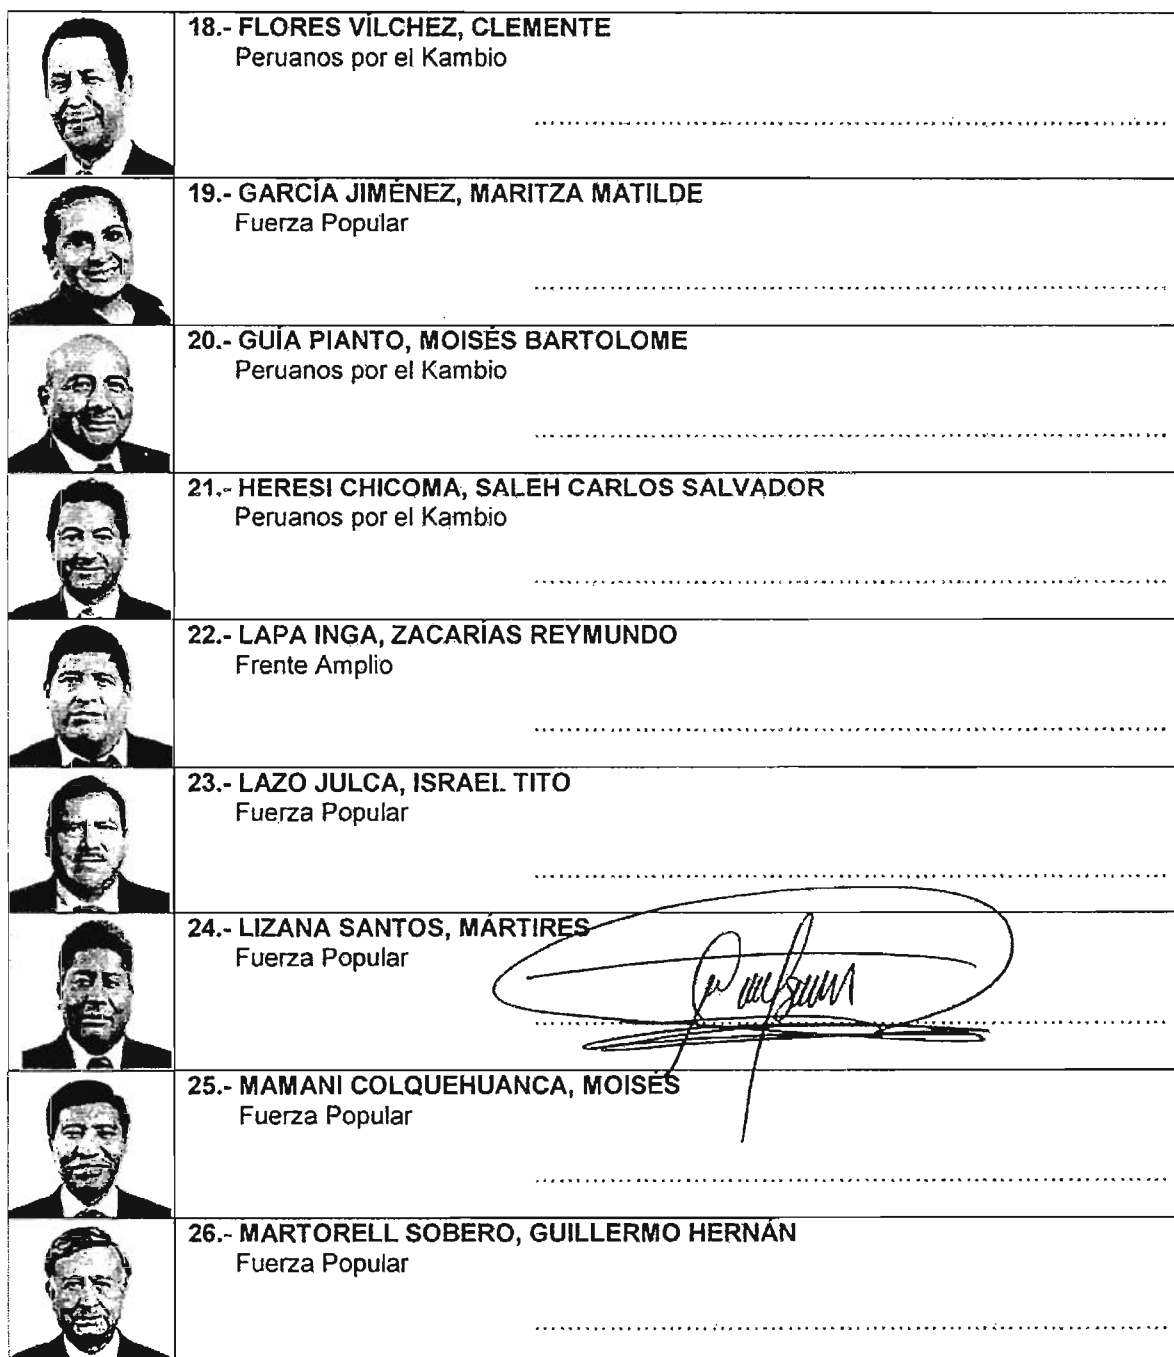 18.- FLORES VÍLCHEZ, CLEMENTE
Peruanos por el Kambio
19.- GARCÍA JIMÉNEZ, MARITZA MATILDE
Fuerza Popular
20.- GUÍA PIANTO, MOISÉS BARTOLOME
Peruanos por el Kambio
21.- HERESI CHICOMA, SALEH CARLOS SALVADOR
Peruanos por el Kambio
22.- LAPA INGA, ZACARÍAS REYMUNDO
Frente Amplio
23.- LAZO JULCA, ISRAEL TITO
Fuerza Popular
24.- LIZANA SANTOS, MÁRTIRES
Fuerza Popular
25.- MAMANI COLQUEHUANCA, MOISÉS
Fuerza Popular
26.- MARTORELL SOBERO, GUILLERMO HERNÁN
Fuerza Popular